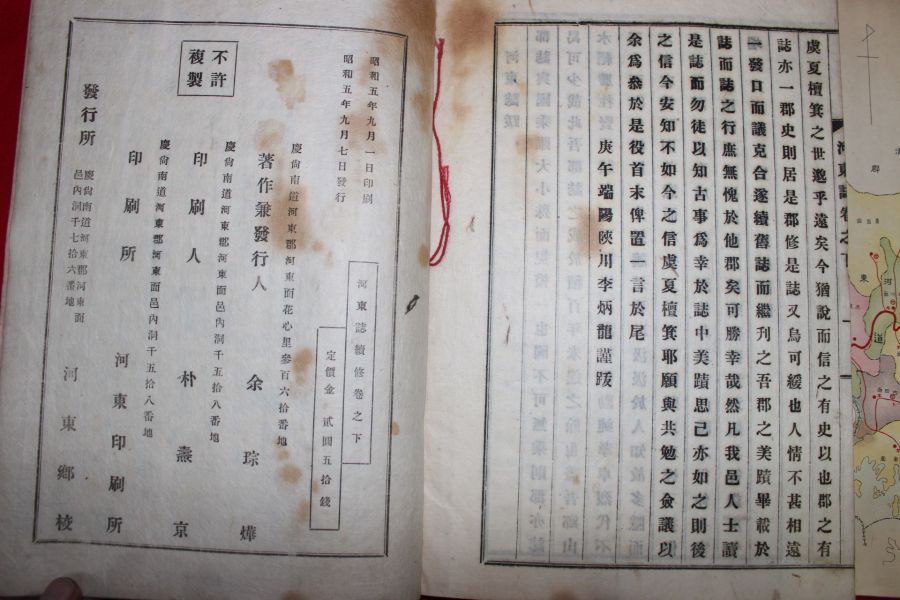 虞夏檀箕之世邈乎遠矣今猶說而信之有史以也郡之有
誌亦一郡史則居是郡修是誌又烏可緩也人情不甚相遠
一發口而議克合遂續舊誌而繼刊之吾郡之美蹟畢載於
誌而誌之行庶無愧於他郡矣可勝幸哉然凡我邑人士讀
是誌而勿徒以知古事爲幸於誌中美蹟思已亦如之則後
之信今安知不如今之信虞夏檀箕耶願與共勉之僉議以
余爲叅於是役首末俾置一言於尾
庚午端陽陜川李炳龍謹跋
河東誌卷之下
河東誌續修卷之下
定價金 貳圓五拾錢
昭和五年九月一日印刷
昭和五年九月七日發行
慶尙南道河東郡河東面花心里參百六拾番地
著作兼發行人 余琮燁
慶尙南道河東郡河東面邑內洞千五拾八番地
印刷人 朴 京
慶尙南道河東郡河東面邑內洞千五拾八番地
印刷所 河東印刷所
慶尙南道河東郡河東面
邑內洞千七拾六番地
發行所 河東鄕校
不許
複製
河
東
道
郡